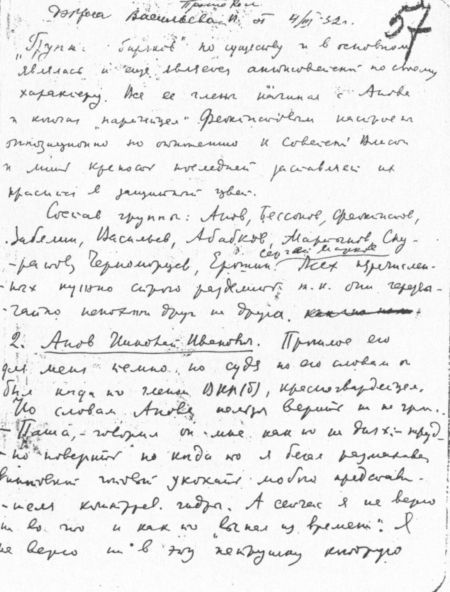 Протокол
допроса Васильева П. от 4/III-32 г.
57
"Группа сибиряков" по существу и в основном
являлась и еще является антисоветской по своему
характеру. Все ее члены начиная с Анова
и кончая Феоктистовым настроены
оппозиционно по отношению к Советской власти
и лишь крепость последней заставляет их
краситься в защитный цвет.
Состав группы: Анов, Бессонов, Феоктистов,
Забелин, Васильев, Абабков, Мартынов, Ску-
Сергей Марков
-ратов, Черноморцев, Ерошин. Всех перечислен-
-ных нужно строго разделить т.к. они чрезвы-
-чайно непохожи друг на друга.
2. Анов Николай Иванович. Прошлое его
для меня темно, но судя по его словам он
был когда-то членом ВКП(б), красногвардейцем.
Но словам Анова нельзя верить ни на грош.
- Паша, - говорил он мне как-то на днях: - труд-
-но поверить но когда-то я бегал размахивая
винтовкой готовый укокать любого представи-
-теля контррев. гидры. А сейчас я не верю
ни во что и как-то "выпал из времени". Я
не верю ни в эту петрушку которую